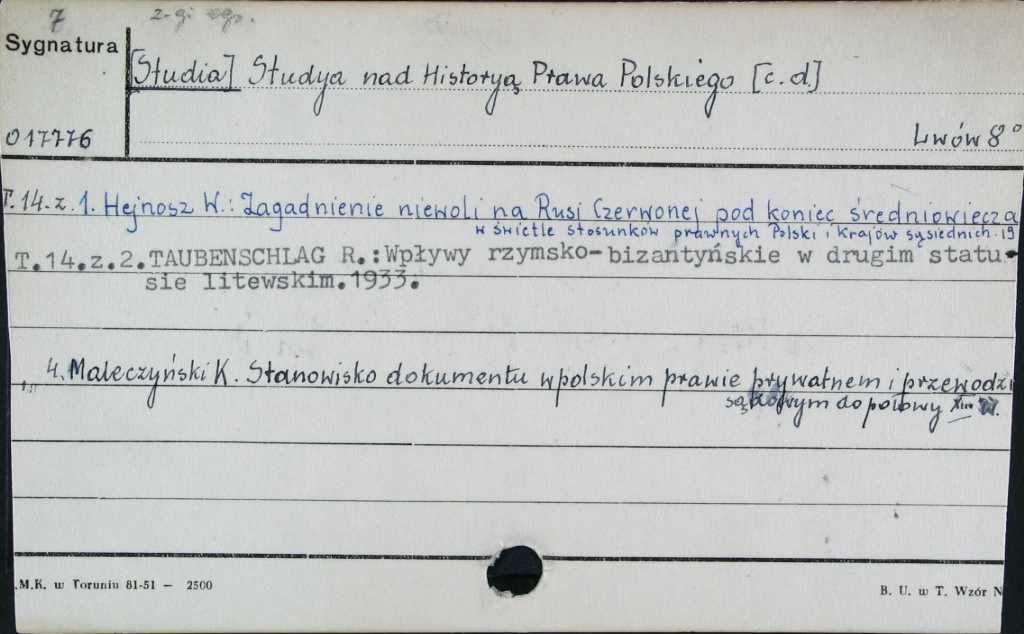 7 2-gi egz.
Sygnatura
[Studia] Studya nad Historyą Prawa Polskiego [c.d.]
017776 Lwów 8°
T.14.z.1. Hejnosz W.: Zagadnienie niewoli na Rusi Czerwonej pod koniec średniowiecza
w świetle stosunków prawnych Polski i krajów sąsiednich. 19
T.14.z.2.TAUBENSCHLAG R.:Wpływy rzymsko-bizantyńskie w drugim statu-
sie litewskim.1933.
4. Maleczyński K. Stanowisko dokumentu w polskim prawie prywatnem i przewodzi
sądowym do połowy XIII w.
.M.K. w Toruniu 81-51 — 2500
B. U. w T. Wzór N